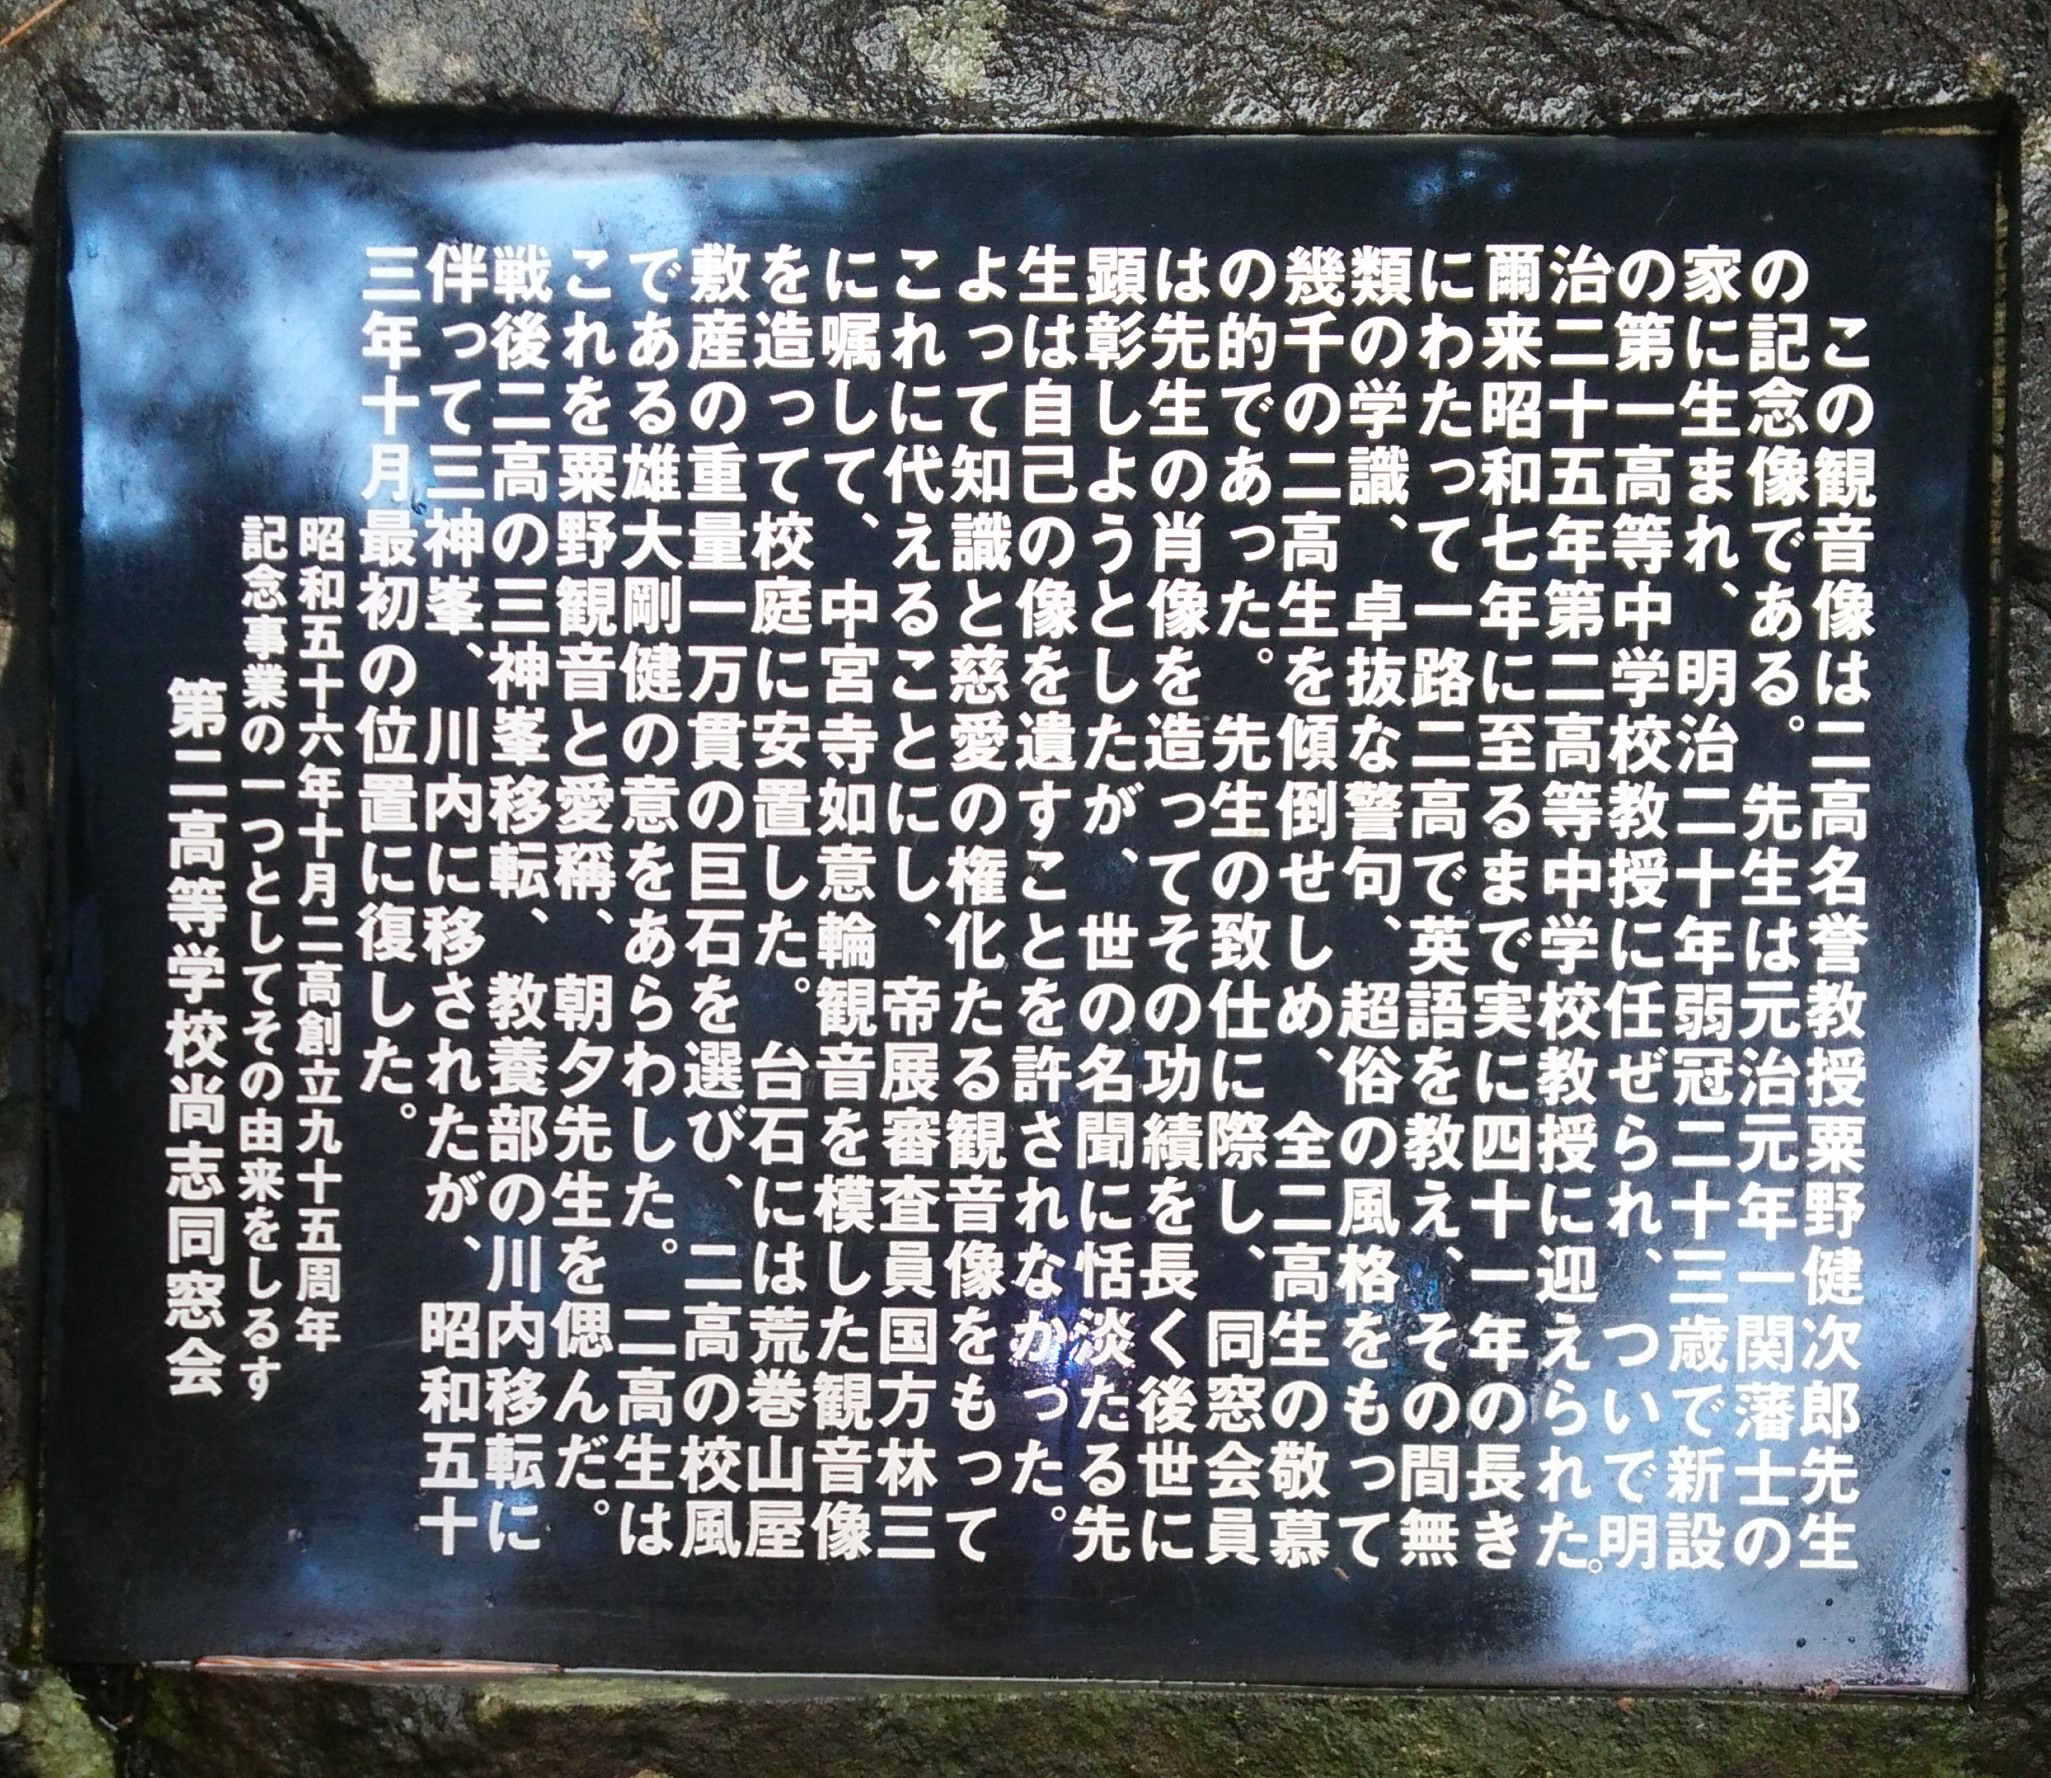 この観音像は二高名誉教授粟野健次郎先生
の記念像である。先生は元治元年一関藩士の
家に生まれ、明治二十年弱冠二十三歳で新設
の第一高等中学校教授に任ぜられ、ついで明
治二十五年第二高等中学校教授に迎えられた。
爾来昭和七年に至るまで実に四十一年の長き
にわたって一路二高で英語を教え、その間無
類の学識、卓抜な警句、超俗の風格をもって
幾千の二高生を傾倒せしめ、全二高生の敬慕
の的であった。先生の致仕に際し、同窓会員
は先生の肖像を造ってその功績を長く後世に
顕彰しようとしたが、世の名聞に恬淡たる先
生は自己の像を遺すことを許されなかった。
よって知識と慈愛の権化たる観音像をもって
これに代えることにし、帝展審査員国方林三
に嘱して、中宮寺如意輪観音を模した観音像
を造って校庭に安置した。台石には荒巻山屋
敷産の重量一万貫の巨石を選び、二高の校風
である雄大剛健の意をあらわした。二高生は
これを粟野観音と愛稱、朝夕先生を偲んだ。
戦後二高の三神峯移転、教養部の川内移転に
伴って三神峯、川内に移されたが、昭和五十
三年十月最初の位置に復した。
昭和五十六年十月二高創立九十五周年
記念事業の一つとしてその由来をしるす
第二高等学校尚志同窓会